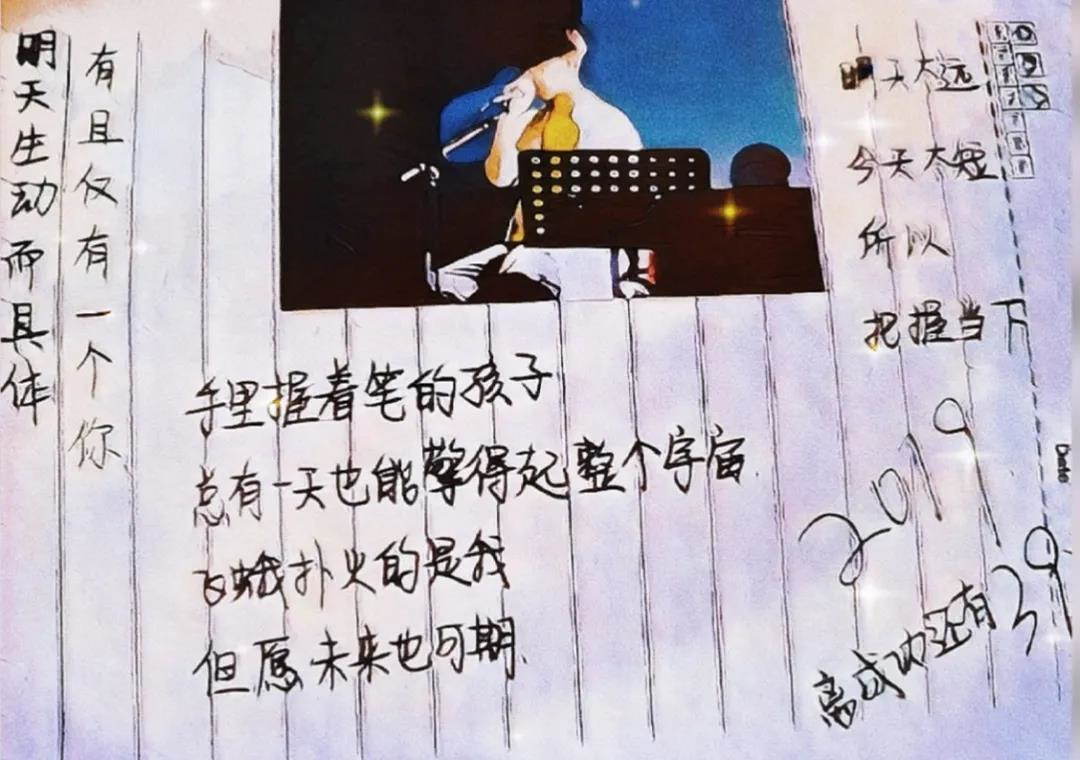 明天生动而具体
有且仅有一个你
手里握着笔的孩子
总有一天也能擎得起整个宇宙
飞蛾扑火的是我
但愿未来也可期
明天太远
今天太短
所以
把握当下
2019
离成功还有39
Date